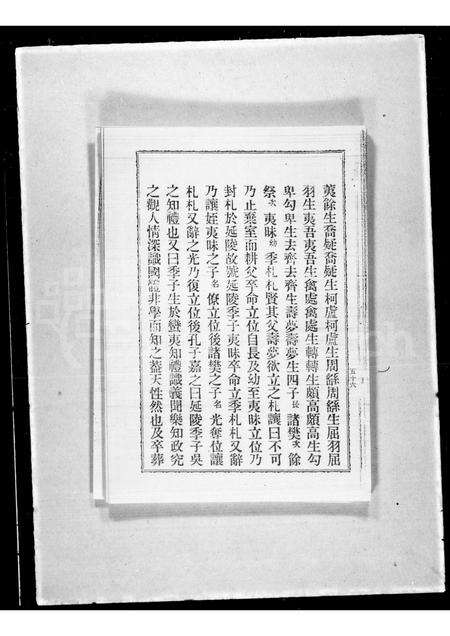 蓂餘生喬疑喬疑生柯盧柯盧生周繇周繇生屈羽屈
羽生夷吾夷吾生禽處禽處生轉轉生頗高頗高生勾
卑勾卑生去齊去齊生壽夢壽夢生四子長諸樊次餘
祭次夷昧幼季札札賢其父壽夢欲立之札讓曰不可
乃止棄室而耕父卒命立位自長及幼至夷昧立位乃
封札於延陵故號延陵季子夷昧卒命立季札札又辭
乃讓姪夷昧之子名僚立位後諸樊之子名光奪位讓
札札又辭之光乃復立位後孔子嘉之曰延陵季子吳
之知禮也又曰季子生於蠻夷知禮識義聞樂知政究
之觀人情深識國體非學而知之蓋天性然也及卒葬
五十六